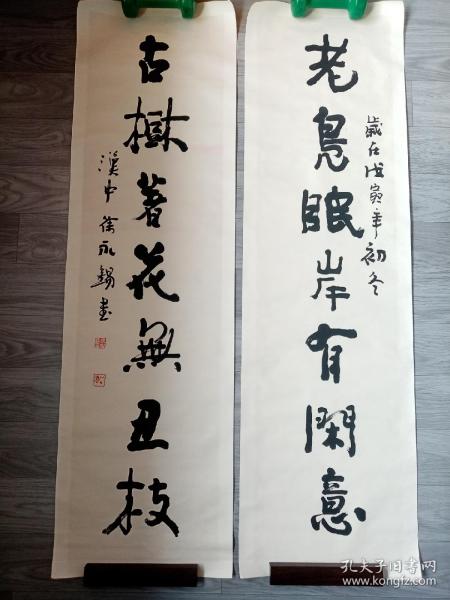 老鳧眠岸有閑意
歲在戊寅年初冬
古樹著花無丑枝
漢中徐永錫書
孔夫子旧书网
www.kongfz.com